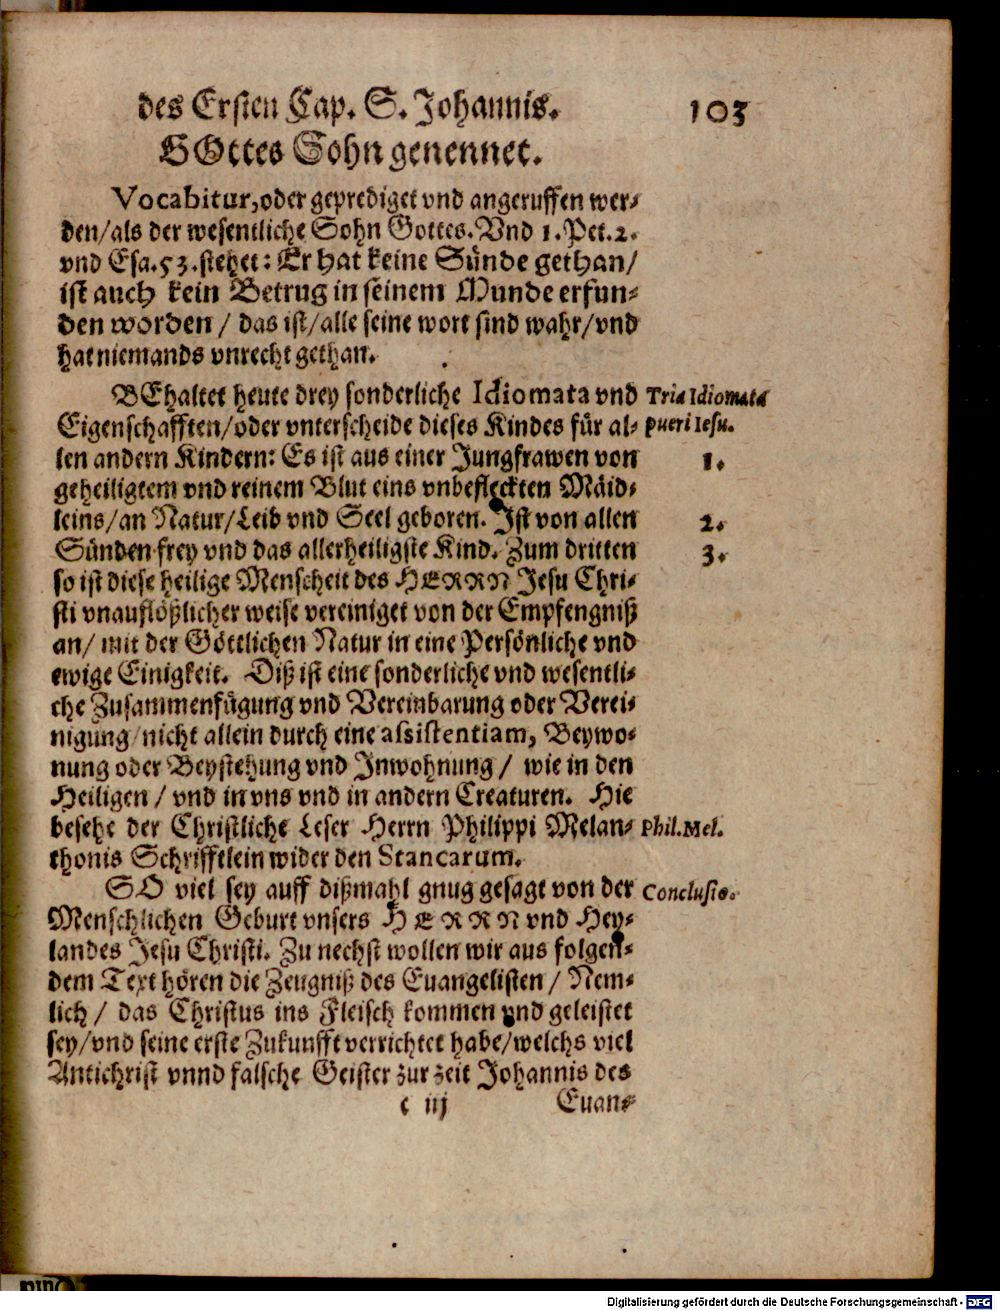 des Ersten Cap. S. Johannis. 103
GOttes Sohn genennet.
Vocabitur, oder geprediget vnd angeruffen wer-
den/als der wesentliche Sohn Gottes. Vnd 1. Pet. 2.
vnd Esa. 53. stehet: Er hat keine Sünde gethan/
ist auch kein Betrug in seinem Munde erfun-
den worden / das ist/alle seine wort sind wahr/vnd
hat niemands vnrecht gethan.
BEhaltet heute drey sonderliche Idiomata vnd Tria Idiomata
Eigenschafften/oder vnterscheide dieses Kindes für al- pueri Iesu.
len andern Kindern: Es ist aus einer Jungfrawen von 1.
geheiligtem vnd reinem Blut eins vnbefleckten Mäid-
leins/an Natur/Leib vnd Seel geboren. Ist von allen 2.
Sünden frey vnd das allerheiligste Kind. Zum dritten 3.
so ist diese heilige Menscheit des HERRN Jesu Chri-
sti vnauflößlicher weise vereiniget von der Empfengniß
an/ mit der Göttlichen Natur in eine Persönliche vnd
ewige Einigkeit. Diß ist eine sonderliche vnd wesentli-
che Zusammenfügung vnd Vereinbarung oder Verei-
nigung/nicht allein durch eine assistentiam, Beywo-
nung oder Beystehung vnd Inwohnung / wie in den
Heiligen / vnd in vns vnd in andern Creaturen. Hie
besehe der Christliche Leser Herrn Philippi Melan- Phil. Mel.
thonis Schrifftlein wider den Stancarum.
SO viel sey auff dißmahl gnug gesagt von der Conclusio.
Menschlichen Geburt vnsers HERRN vnd Hey-
landes Jesu Christi. Zu nechst wollen wir aus folgen-
dem Text hören die Zeugniß des Euangelisten / Nem-
lich / das Christus ins Fleisch kommen vnd geleistet
sey/vnd seine erste Zukunfft verrichtet habe/welchs viel
Antichrist vnnd falsche Geister zur zeit Johannis des
c iij Euan-
Digitalisierung gefördert durch die Deutsche Forschungsgemeinschaft - DFG